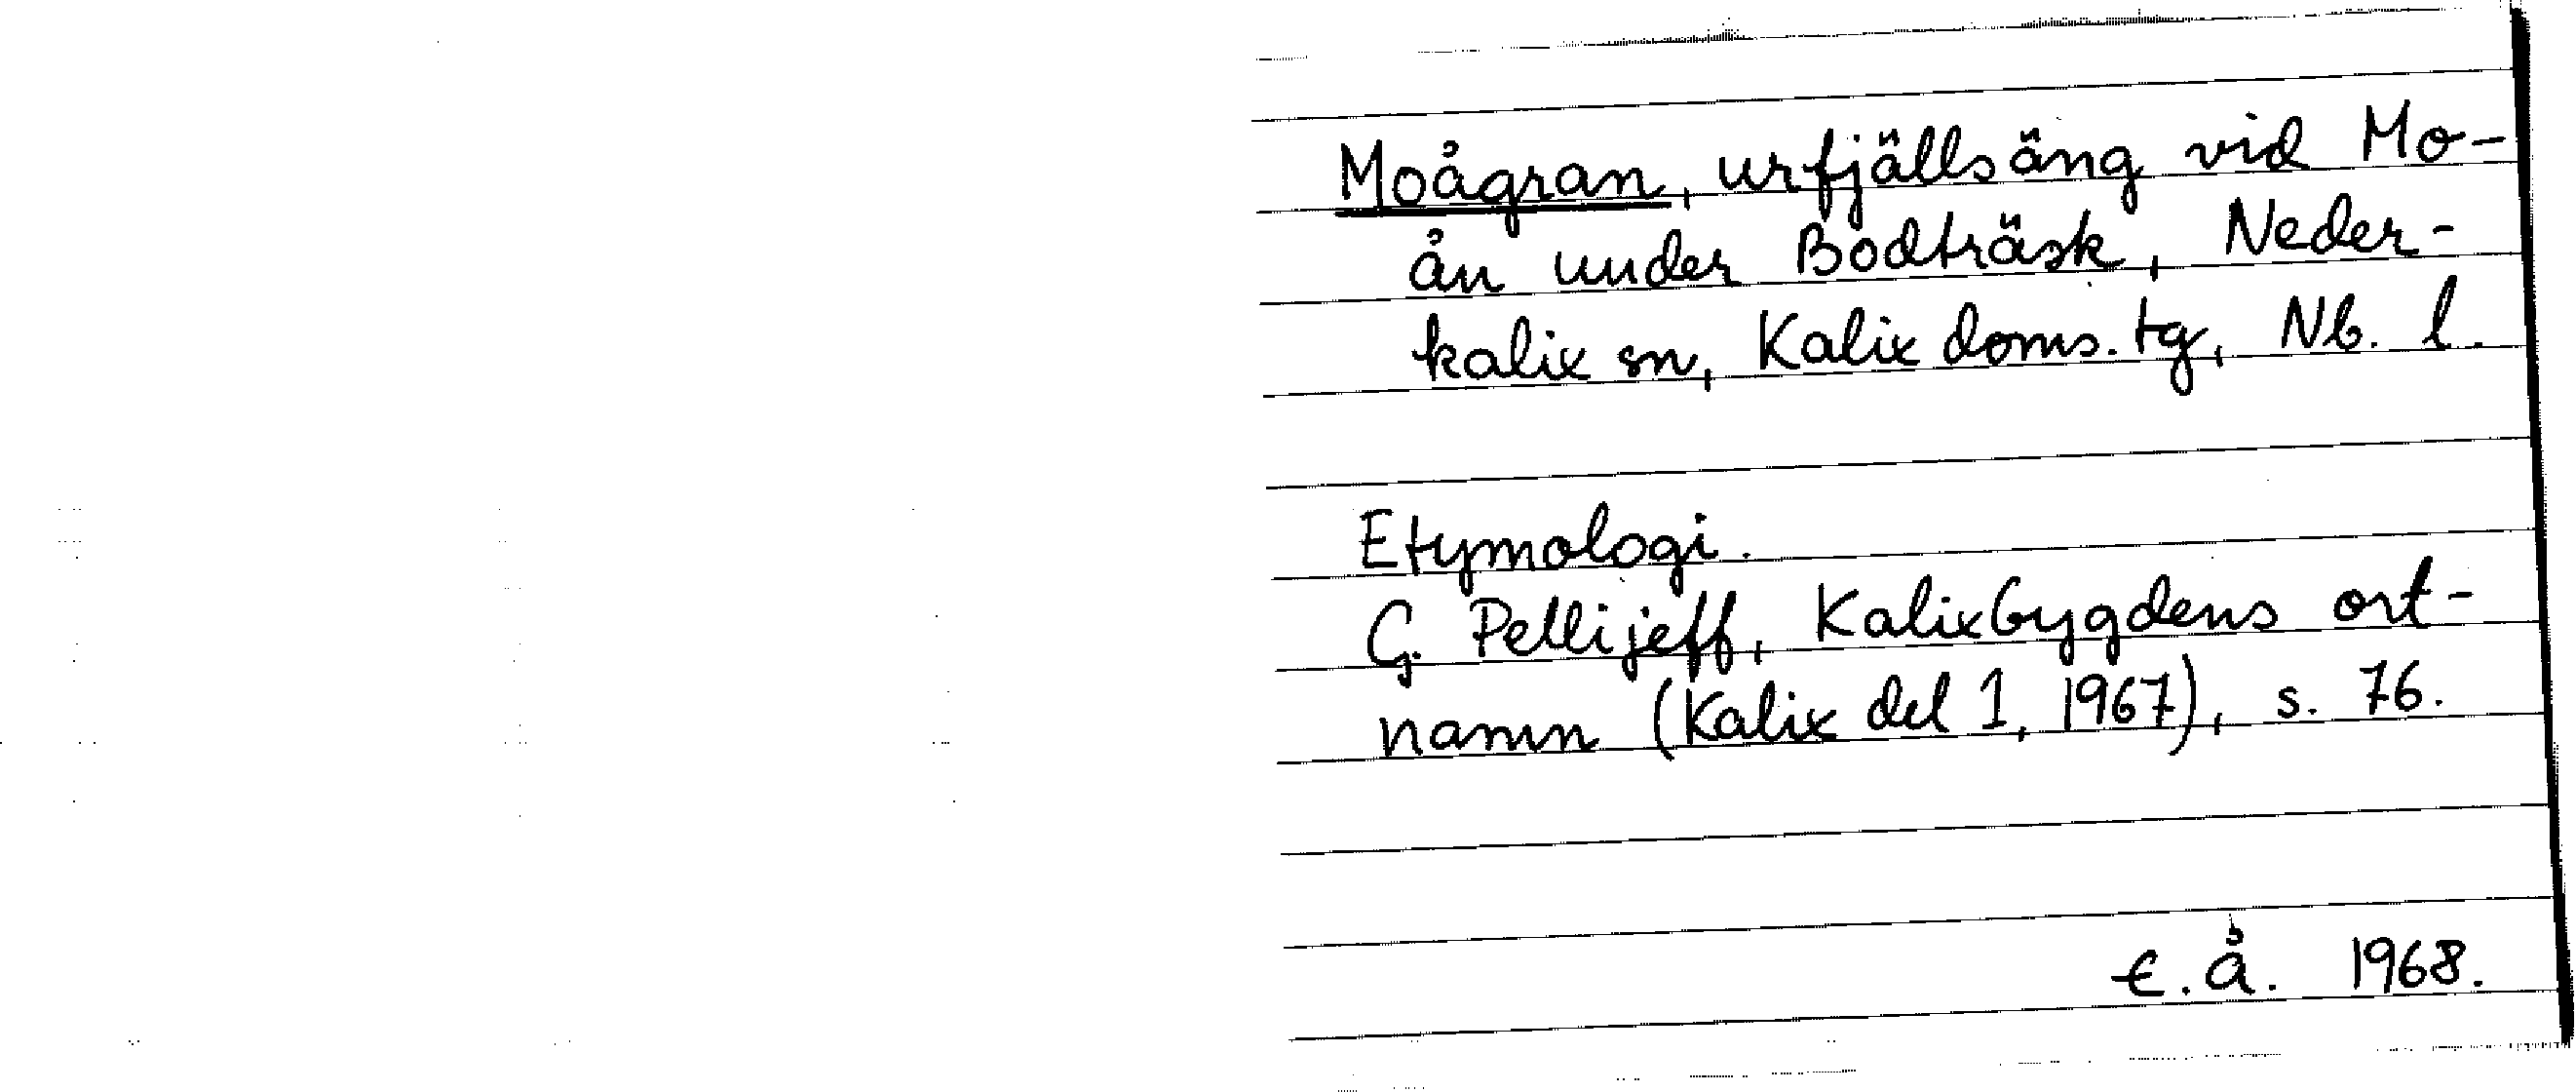 Moågran, urfjällsäng vid Mo-
ån under Bodträsk, Neder-
kalix sn, Kalix doms. tg, Nb. l.
Etymologi.
G. Pellijeff, Kalixbygdens ort-
namn (Kalix del 1, 1967), s. 76.
E.Å. 1968.